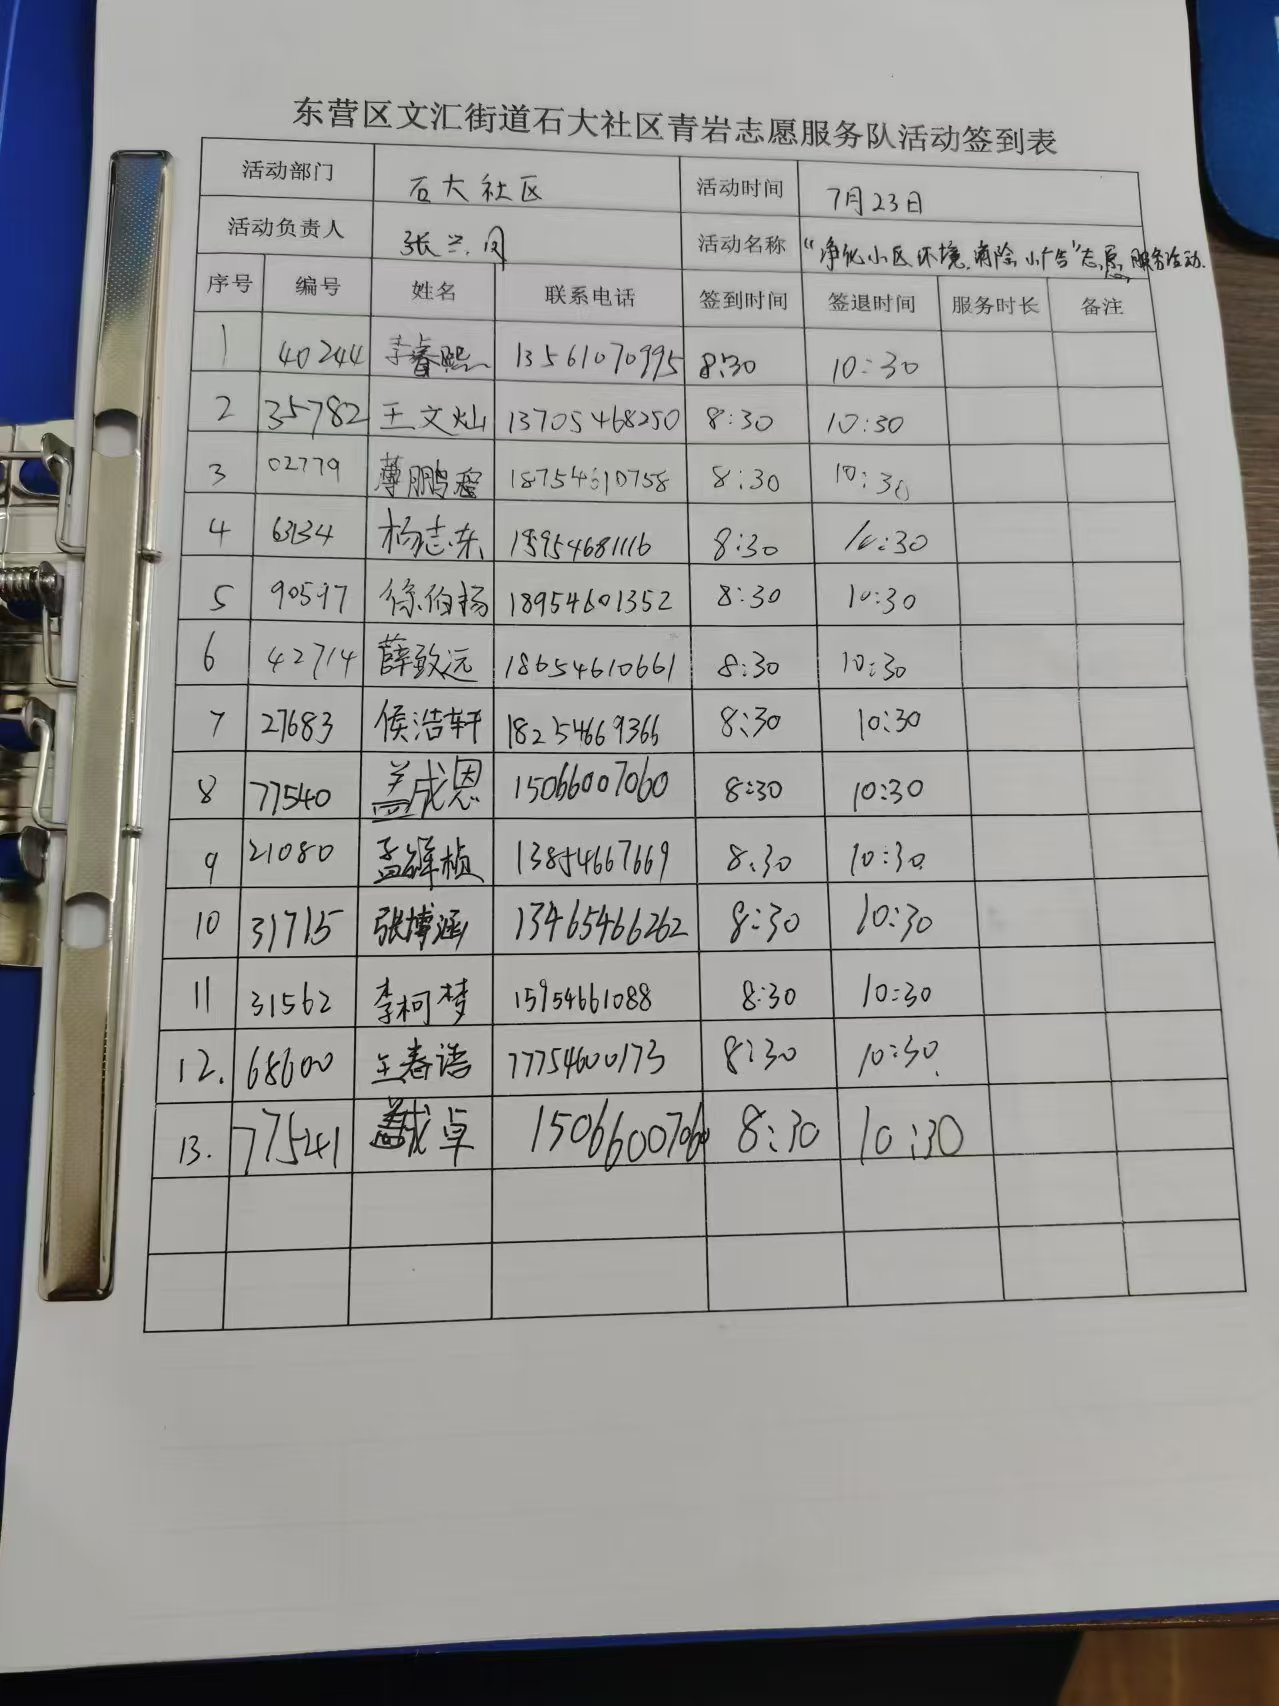 东营区文汇街道石大社区青岩志愿服务队活动签到表
活动部门 石大社区 活动时间 7月23日
活动负责人 张兰月 活动名称 “净化小区环境,清除小广告”志愿服务活动.
序号 编号 姓名 联系电话 签到时间 签退时间 服务时长 备注
1 40244 李睿熙 13561070995 8:30 10:30
2 35782 王文灿 13705468250 8:30 10:30
3 02779 薄鹏 18754610758 8:30 10:30
4 63134 杨志东 15954681116 8:30 10:30
5 90597 徐伯扬 18954601352 8:30 10:30
6 42714 薛致远 18654610661 8:30 10:30
7 27683 侯浩轩 18254669366 8:30 10:30
8 77540 盖成恩 15066007060 8:30 10:30
9 21080 孟繹桢 13854667669 8:30 10:30
10 31715 张博涵 13465466262 8:30 10:30
11 31562 李柯梦 15954661088 8:30 10:30
12. 68600 王春语 17754600173 8:30 10:30
13. 77541 盖成卓 15066007060 8:30 10:30